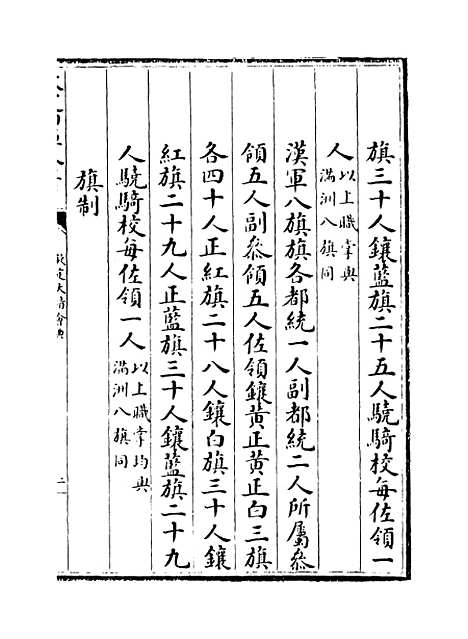 旗三十人鑲藍旗二十五人驍騎校每佐領一
人以上職掌與
滿洲八旗同
漢軍八旗旗各都統一人副都統二人所屬叅
領五人副叅領五人佐領鑲黄正黄正白三旗
各四十人正紅旗二十八人鑲白旗三十人鑲
紅旗二十九人正藍旗三十人鑲藍旗二十九
人驍騎校每佐領一人以上職掌均與
滿洲八旗同
旗制
欽定大清會典
二